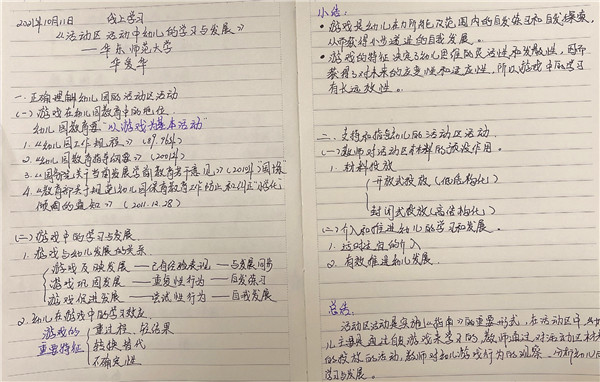 2021年10月11日 线上学习
《活动区活动中幼儿的学习与发展》
——华东师范大学
华爱华
一.正确理解幼儿园的活动区活动
(一)游戏在幼儿园教育中的地位
幼儿园教育要"以游戏为基本活动"
1.《幼儿园工作规程》(89.96年)
2.《幼儿园教育指导纲要》(2001年)
3.《国务院关于当前发展学前教育若干意见》(2010年"国十条")
4.《教育部关于规范幼儿园保育教育工作防止和纠正"小学化"
倾向的通知》(2011.12.28)
(二)游戏中的学习与发展
1.游戏与幼儿发展的关系
游戏反映发展——已有经验表现——与发展同步
游戏巩固发展——重复性行为——自发练习
游戏促进发展——尝试性行为——自我发展
2.幼儿在游戏中的学习效应
游戏的
重要特征
重过程、轻结果
转换替代
不确定性
小结:
·游戏是幼儿在力所能及范围内的自发练习和自我探索,
从而获得小步递进的自我发展。
·游戏的特征决定了幼儿思维的灵活性和发散性,因而
获得了对未来的应变性和适应性,所以游戏中的学习
有长远效性。
二、支持和推进幼儿的活动区活动
(一)教师对活动区材料的投放作用。
1.材料投放
开放式投放(低结构化)
封闭式投放(高结构化)
(二)介入和推进幼儿的学习和发展。
1.适时适宜的介入
2.有效推进幼儿发展
总结:
活动区活动是实施《指南》的重要形式,在活动区中,幼
儿主要是通过自发游戏来学习的,教师通过对活动区材料
的投放的活动,教师对幼儿游戏行为的观察,
学习与发展。